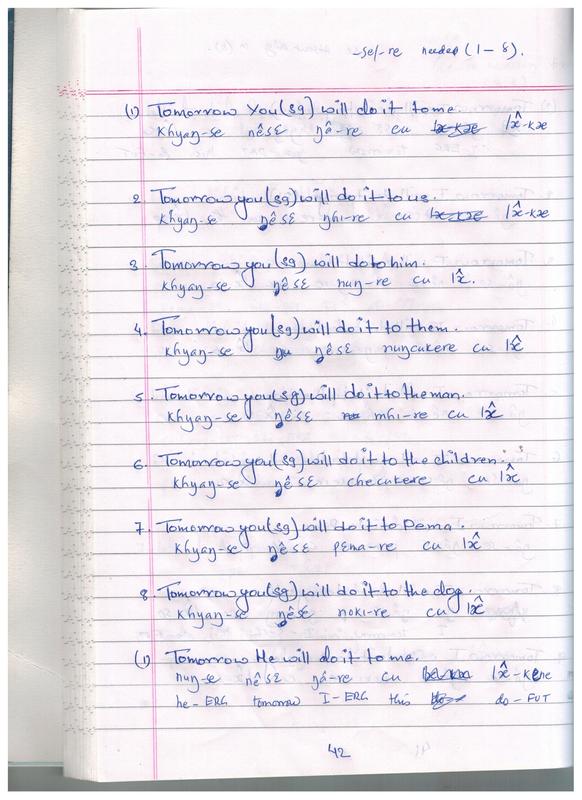 -se/-re needed (1-8).
(1) Tomorrow You (sg) will do it to me.
khyaŋ-se nêsɛ ŋâ-re cu læ̂-kæ
2. Tomorrow you (sg) will do it to us.
khyaŋ-se ŋêsɛ ŋhi-re cu læ̂-kæ
3. Tomorrow you (sg) will do to him.
khyaŋ-se ŋêsɛ nuŋ-re cu læ̂.
4. Tomorrow you (sg) will do it to them.
khyaŋ-se ŋêsɛ nuŋcukere cu læ̂
5. Tomorrow you (sg) will do it to the man.
khyaŋ-se ŋêsɛ mhi-re cu læ̂
6. Tomorrow you (sg) will do it to the children.
khyaŋ-se ŋêsɛ checukere cu læ̂
7. Tomorrow you (sg) will do it to Pema.
khyaŋ-se ŋêsɛ pɛma-re cu læ̂
8. Tomorrow you (sg) will do it to the dog.
khyaŋ-se ŋêsɛ noki-re cu læ̂
(1) Tomorrow He will do it to me.
nuŋ-se nêsɛ ŋâ-re cu læ̂-kene
he-ERG tomorrow I-ERG this do-FUT
42